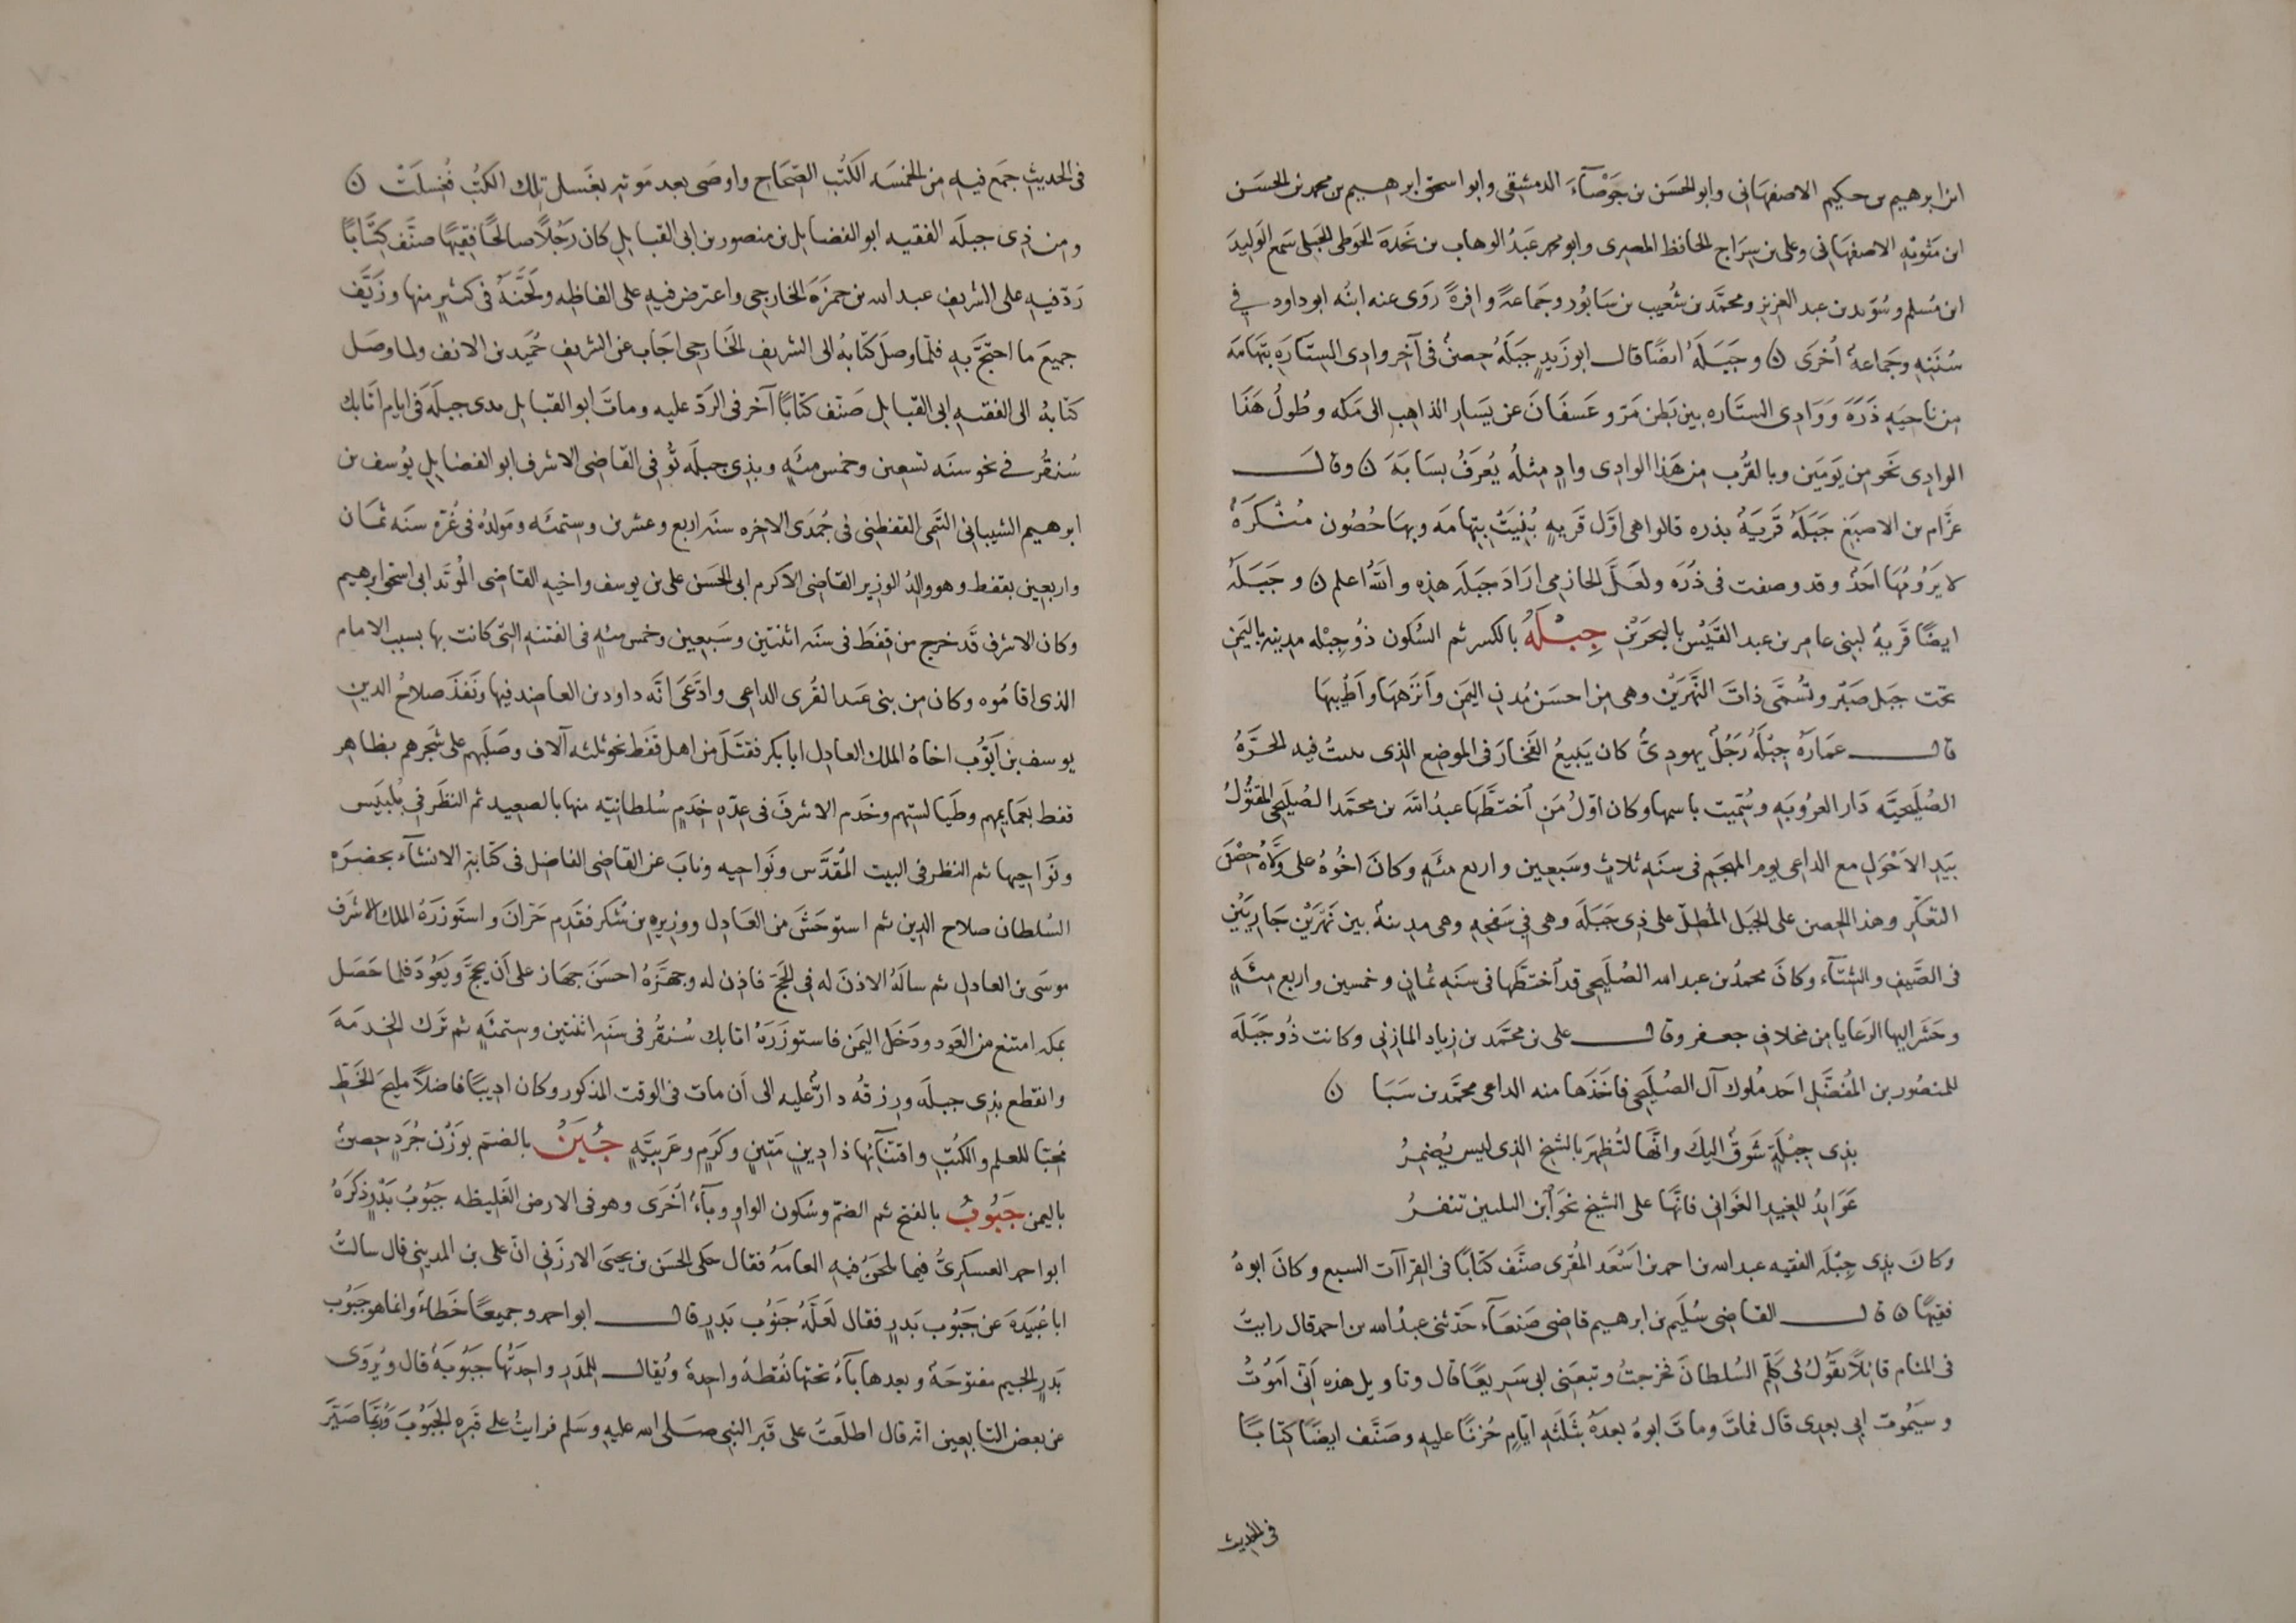 ابن ابرهيم بن حكيم الاصفهاني وابو الحسَن بن جَوْصَآءَ الدمشقي وابو اسحق ابرهيم بن محمد بن الحسَن
ابن مَتّويَهِ الاصفهاني وعلي بن سِرَاج الحافظ المصري وابو محمد عَبدُ الوهاب بن نَجدَةَ الحَوطي الجَبَلي سَمع الوَليدَ
ابن مُسلم وسُوَيد بن عبد العزيز ومحمَّد بن شُعَيب بن سَابُور وجَماعةً وافرةً رَوَى عنه ابنُه ابو داود في
سُنَنِه وجَماعةٌ اُخرَى ن وجَبَلَةُ ايضًا قال ابو زَيدٍ جَبَلَةُ حِصنٌ في آخِر وادي السِتَارَةِ بتِهَامَة
مِن ناحِيَةِ ذَرَةَ وَوَادِي السِتَاره بين بَطن مَرّ وعَسفَانَ عن يَسَارِ الذاهبِ الى مَكه وطُولُ هَذَا
الوادِي نَحو مِن يَومَين وبالقُرب مِن هَذا الوادِي وادٍ مِثلُه يُعرَفُ بسَايَةَ ن وقالَ
عرَّام بن الاصبَغ جَبَلَةُ قَريَةٌ بذره قالوا هي اوّل قَريةٍ بُنِيَتْ بتِهامَه وبهَا حُصُون مُنْكَرَةٌ
لا يَرُومُهَا احَدٌ وقد وصفت في ذَرَه ولعَلَّ الحازمي ارَادَ جَبَلَة هذِه واللهُ اعلم ن وجَبَلَةُ
ايضًا قَريةٌ لبني عامِر بن عبد القَيْس بالبحرَيْن جِبْلَةُ بالكسر ثم السُكون ذُو جِبْله مدينه باليَمن
تحت جَبَل صَبْر وتُسمَّى ذاتَ النَّهرَيْن وهي مِن احسَن مُدن اليمَن وأنزَهِهَا واَطيبِهَا
قال عمَارَة جِبْلَةُ رَجُلٌ يهودِيٌّ كان يَبيعُ الفَخارَ في الموضِع الذي بنت فيه الحُرَّةُ
الصُليَحيَّه دَار العرُوبَهِ وسُمِّيت باسمها وكان اوّلُ مَن اختطَّهَا عبدُ الله بن محمَّد الصُليَحِي المقتُولُ
بيَدِ الاَحْوَلِ مع الداعي يوم المهجَمِ في سنَه ثلاثٍ وسَبعين واربع مئَهٍ وكانَ اخُوهُ علي وَلّاهُ حِصْنَ
التعكَر وهذا الحِصن على الجَبَل المُطلّ على ذِي جَبَلَه وهي في سَفحِهِ وهي مدينةٌ بين نَهرَيْن جَاريَيْن
في الصَّيفِ والشتَآء وكانَ محمدُ بن عبد الله الصُلَيحي قد اختطَّها في سَنَهِ ثمانٍ وخمسين واربع مِئَهٍ
وحَشَر اليها الرَعايا مِن مخلاف جعفر وقال علي بن محمَّد بن زياد المازِني وكانت ذُو جِبَلَه
للمنصُور بن المُفضَّل احَد مُلوك آل الصُلَيحي فاخَذَها منه الداعي محمَّد بن سَبَا ن
بذِي جِبْلَةٍ شَوقٌ اليكَ وانّها لتُظهِرَ بالشيخ الذي ليس يُضمِرُ
عَوَايِدُ للغِيدِ الغَوَاني فانَّها على الشيخ نحوَ ابن الثلثين تنفرُ
وكانَ بذِي جِبْلَه الفقيه عبد الله بن احمد بن اَسْعَد المُقري صنَّف كتابًا في القِراآت السبع وكانَ ابوهُ
فقيهًا ن قال القاضِي سُلَيم بن ابرهيم قاضي صَنعَآء حَدّثني عبدُ الله بن احمد قال رايتُ
في المنام قائلًا يَقُولُ لي كَلِّم السُلطانَ فخرجتُ وتبعَني ابي سَريعًا قال وتاويل هذه اَنّي اَمُوتُ
وسَيمُوت ابي بعدِي قال فماتَ وماتَ ابوهُ بعدَهُ بثَلثَهِ ايّامٍ حُزنًا عليهِ وصَنَّف ايضًا كِتابًا
في الحديث
في الحديثِ جمَع فيهِ مِن الخمسَه الكتُب الصِّحَاح واوصَى بعد مَوته بغَسل تلك الكتُب فغُسِلَتْ ن
ومِن ذِي جبلَه الفقيه ابو الفضايل بن منصور بن ابي القبايل كان رَجُلًا صالحًا فقِيهًا صنَّف كتَابًا
رَدّ فيهِ على الشريف عبد الله بن حمزَةَ الخارجي واعترض فيهِ على الفاظِه ولَحَّنَهُ في كثيرٍ منها وزَيَّف
جميعَ ما احتجَّ به فلمّا وصلَ كتابهُ الى الشريفِ الخَارجي اجَاب عن الشريف حُمَيد بن الانف ولما وصَل
كتابهُ الى الفقيه ابي القبايل صَنّف كتابًا آخر في الردّ عليه وماتَ ابو القبايل بذي جبلَه في ايام اتابك
سُنقُر في نحو سنَه تسعين وخمس مئَهٍ وبذي جبلَه تُوفي القاضي الاشرف ابو الفضايل يُوسف بن
ابرهيم الشيباني التَيمي القفطي في جُمَدَى الاخره سنَه اربع وعشرين وستمئَه ومَولدُه في غُرّه سنَه ثمَان
واربعين بقفط وهو والِدُ الوزير القاضي الاكرم ابي الحَسَن علي بن يوسف واخيهِ القاضي المُؤيَّد ابي اسحق ابرهيم
وكان الاشرف قد خرج من قِفطَ في سنَه اثنتين وسَبعين وخمس مئهٍ في الفتنهِ التي كانت بها بسبب الامام
الذي اقامُوه وكان مِن بني عَبد القوي الداعي وادّعَى انّه داود بن العاضد فيها ونَفذَ صلاحُ الدين
يوسف بن اَيّوب اخاهُ الملك العادِل ابا بكر فقتَلَ مِن اهل قفط نحو ثلثه آلاف وصَلَبَهم على شَجرهم بظاهر
قفط بعَمَايمهم وطَيَالستِهم وخَدم الاشرفُ في عِدّهِ خِدَمٍ سُلطانيّه منها بالصعيد ثم النظَر في بُلبَيس
ونَواحِيها ثم النظر في البيت المُقدَّس ونَواحيه ونابَ عن القاضي الفاضِل في كتابةِ الانشآء بحضرَةِ
السُلطان صلاح الدين ثم استوحَشَ من العَادِل ووزيرِه ابن شُكر فقدِم حَرّانَ واستَوزرَهُ الملك الاشرف
موسَى بن العادِل ثم سالَهُ الاذنَ له في الحَجّ فاذِن له وجهَّزَهُ احسَنَ جهَاز على اَن يحجَّ ويَعُودَ فلما حَصَل
بمكه امتنع من العَود ودَخل اليمَن فاستوزَرَهُ اتابك سُنقُر في سَنه اثنتين وستمئَهٍ ثم تَرك الخِدمَةَ
وانقطع بذِي جبلَه ورِزقُه دارٌّ عليه الى اَن مات في الوقت المذكور وكان اديبًا فاضلًا مليحَ الخَطِّ
مُحبّا للعلم والكتُبِ واقتنآئها ذا دِينٍ مَتينٍ وكرَمٍ وعَرَبيَّهٍ جُبَنُ بالضم بوَزن جُرَدٍ حِصنٌ
باليمن جَبُوبُ بالفتح ثم الضمّ وسُكون الواو وبآءٌ اُخرَى وهو في الارض الغَليظه جَبُوبُ بَدْرٍ ذكرَهُ
ابو احمد العسكرِيُّ فيما يلحَنُ فيهِ العامَه فقال حكى الحَسَن بن يحيَى الارزَني انّ علي بن المديني قال سالتُ
ابا عُبَيدَةَ عن جَبُوب بَدرٍ فقال لعَلَّهُ جَنُوب بَدرٍ قال ابو احمد وجميعًا خَطاءٌ وانما هو جَبُوب
بَدرٍ الجيم مفتوحَةٌ وبعدها بآءٌ تحتها نُقطهٌ واحدةٌ ويُقال للمَدَر واحِدَتُها جَبُوبَةٌ قال ويُروَى
عن بعض التابعين انه قال اطلَعتُ على قَبر النبي صَلى الله عليهِ وسَلم فرايتُ على قبرِه الجَبُوبَ ورُبّما صَيّر